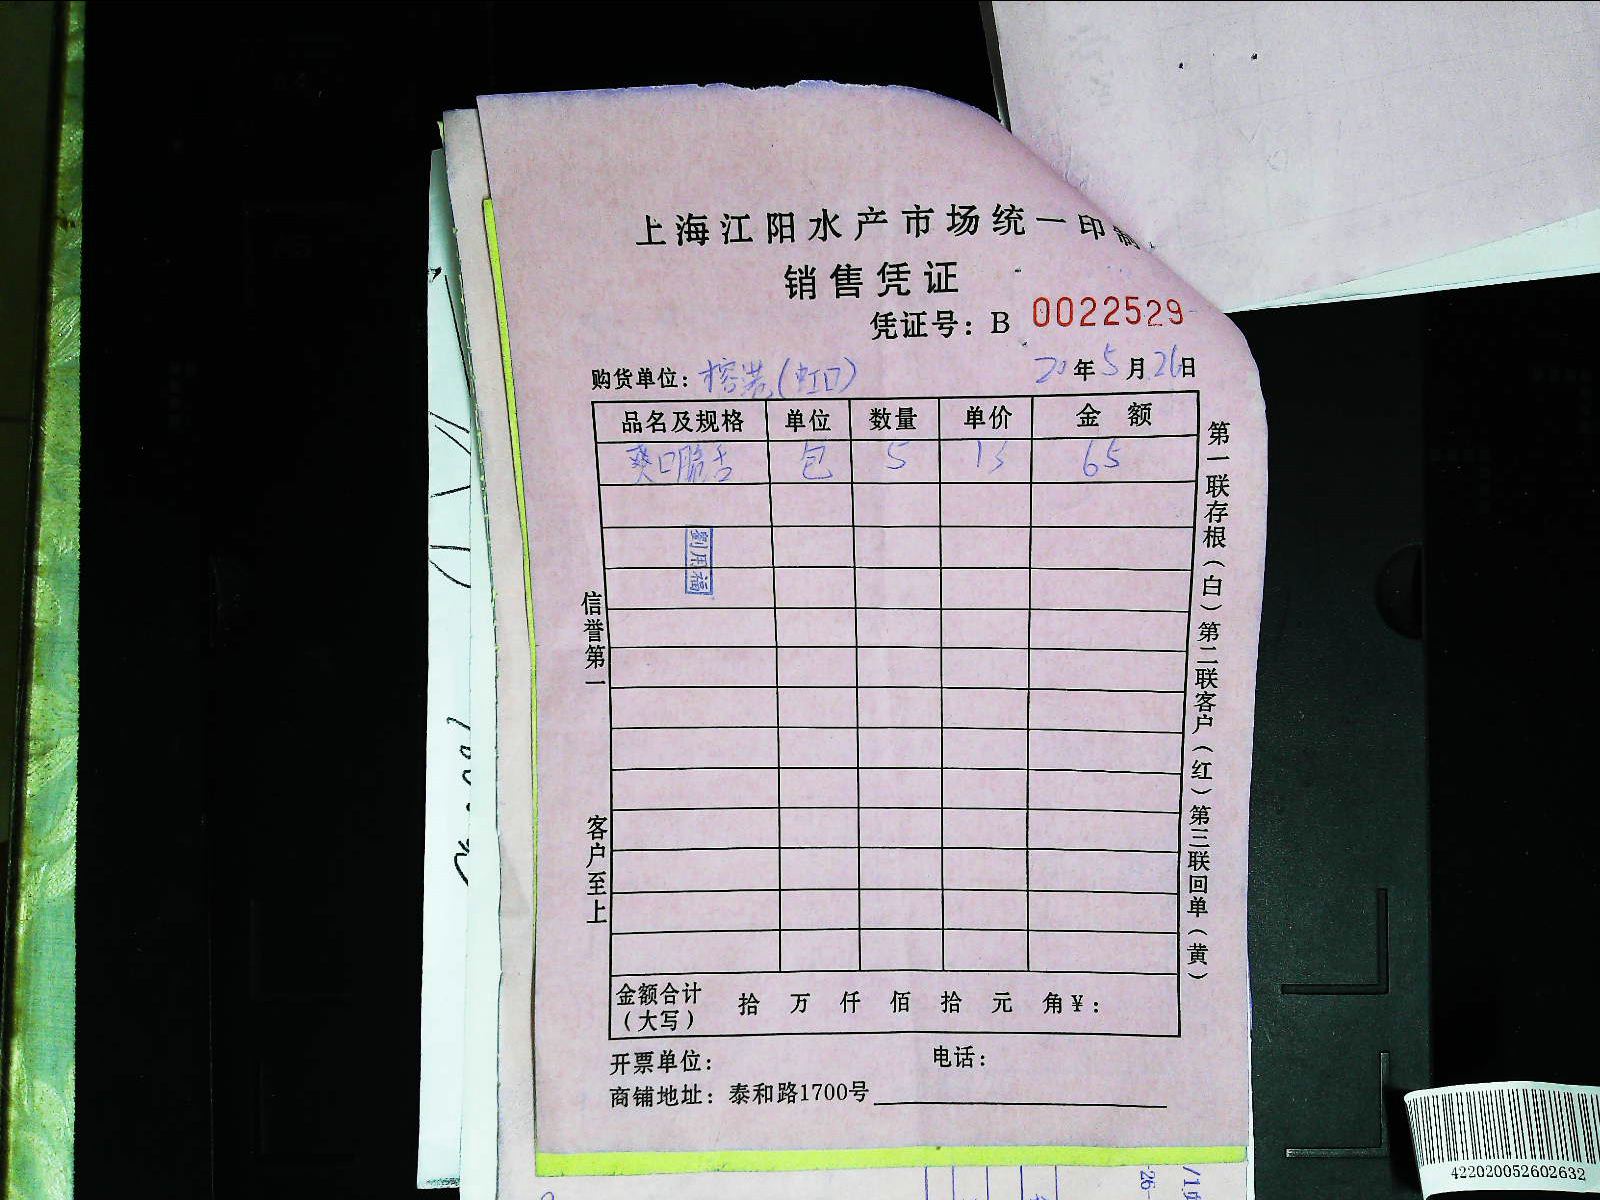 上海江阳水产市场统一印制
销售凭证
凭证号：B 0022529
购货单位：榕港(虹口) 20年5月26日
品名及规格 单位 数量 单价 金额
爽口脆舌 包 5 13 65
劉用福
信誉第一
客户至上
第一联存根（白）第二联客户（红）第三联回单（黄）
金额合计 拾 万 仟 佰 拾 元 角¥：
（大写）
开票单位： 电话：
商铺地址：泰和路1700号
422020052602632